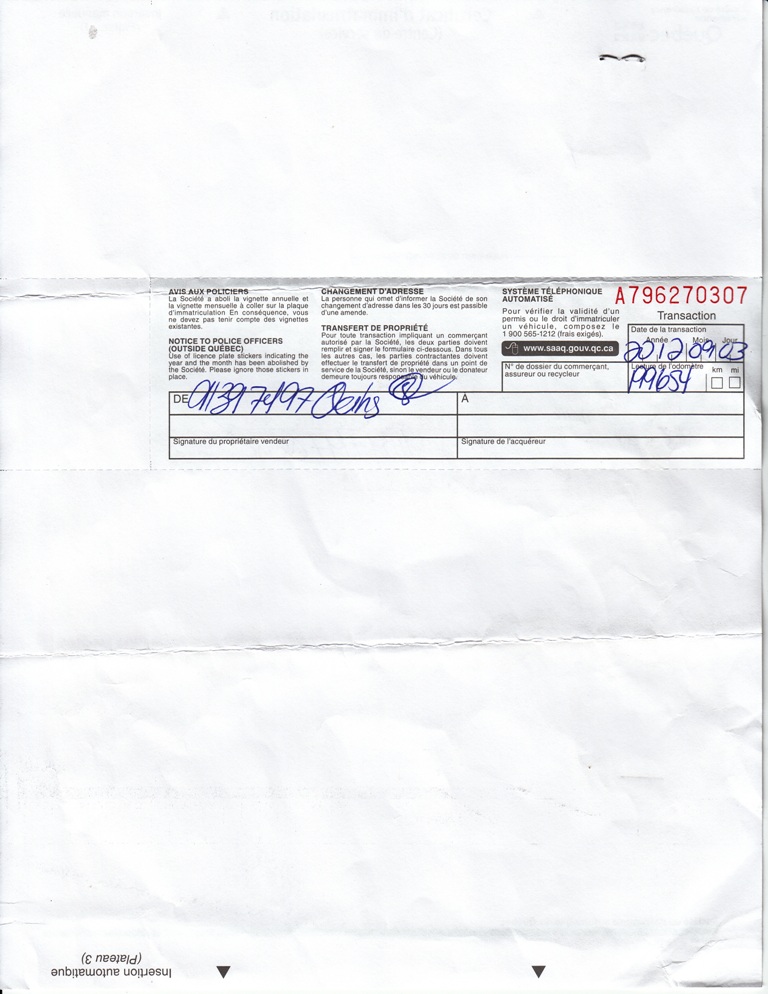 AVIS AUX POLICIERS
La Société a aboli la vignette annuelle et
la vignette mensuelle à coller sur la plaque
d'immatriculation En conséquence, vous
ne devez pas tenir compte des vignettes
existantes.
NOTICE TO POLICE OFFICERS
(OUTSIDE QUÉBEC)
Use of licence plate stickers indicating the
year and the month has been abolished by
the Société. Please ignore those stickers in
place.
CHANGEMENT D'ADRESSE
La personne qui omet d'informer la Société de son
changement d'adresse dans les 30 jours est passible
d'une amende.
TRANSFERT DE PROPRIÉTÉ
Pour toute transaction impliquant un commerçant
autorisé par la Société, les deux parties doivent
remplir et signer le formulaire ci-dessous. Dans tous
les autres cas, les parties contractantes doivent
effectuer le transfert de propriété dans un point de
service de la Société, sinon le vendeur ou le donateur
demeure toujours du véhicule.
SYSTÈME TÉLÉPHONIQUE
AUTOMATISÉ
Pour vérifier la validité d'un
permis ou le droit d'immatriculer
un véhicule, composez le
1 900 565-1212 (frais exigés).
www.saaq.gouv.qc.ca
N° de dossier du commerçant,
assureur ou recycleur
A796270307
Transaction
Date de la transaction
Année Mois Jour
2012 09 03
Lecture de l'odomètre
km mi
199654
DE 9139 7497
A
Signature du propriétaire vendeur
Signature de l'acquéreur
Insertion automatique
(Plateau 3)